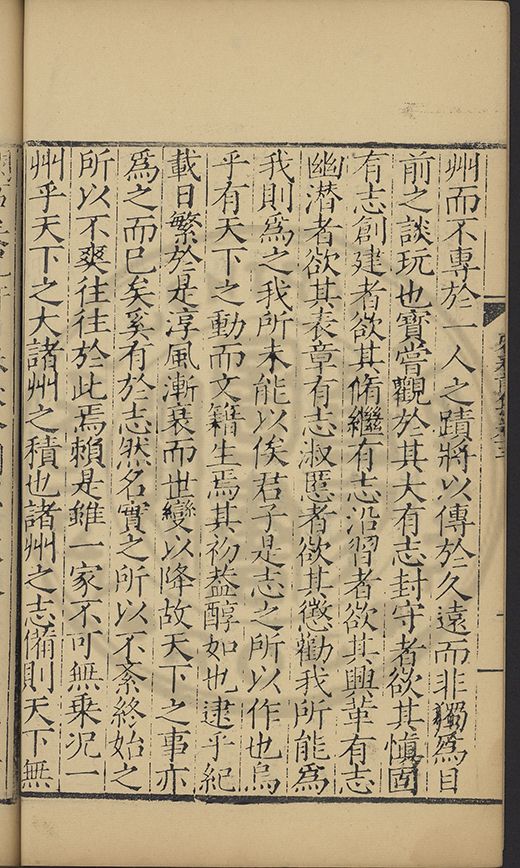 州而不專於一人之蹟將以傳於久遠而非獨爲目
前之談玩也實嘗觀於其大有志封守者欲其慎固
有志創建者欲其脩繼有志沿習者欲其興革有志
幽潜者欲其表章有志淑慝者欲其懲勸我所能爲
我則爲之我所未能以俟君子是志之所以作也烏
乎有天下之動而文籍生焉其初葢醇如也逮乎紀
載日繁於是淳風漸衰而世變以降故天下之事亦
爲之而已矣奚有於志然名實之所以不紊終始之
所以不爽往往於此焉賴是雖一家不可無乗况一
州乎天下之大諸州之積也諸州之志備則天下無